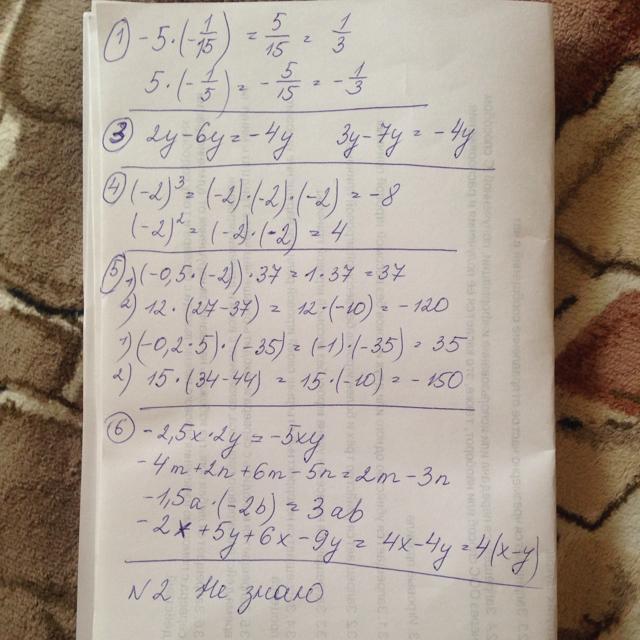 ① -5·(-1/15) = 5/15 = 1/3
5·(-1/5) = -5/15 = -1/3
③ 2y-6y=-4y 3y-7y=-4y
④ (-2)³=(-2)·(-2)·(-2) = -8
(-2)²=(-2)·(-2)=4
⑤ 1)(-0,5·(-2))·37=1·37=37
2) 12·(27-37) = 12·(-10)=-120
1)(-0,2·5)·(-35)=(-1)·(-35) = 35
2) 15·(34-44) = 15·(-10)=-150
⑥ -2,5x·2y=-5xy
-4m+2n+6m-5n=2m-3n
-1,5a·(-2b)=3ab
-2x+5y+6x-9y=4x-4y=4(x-y)
N2 Не знаю